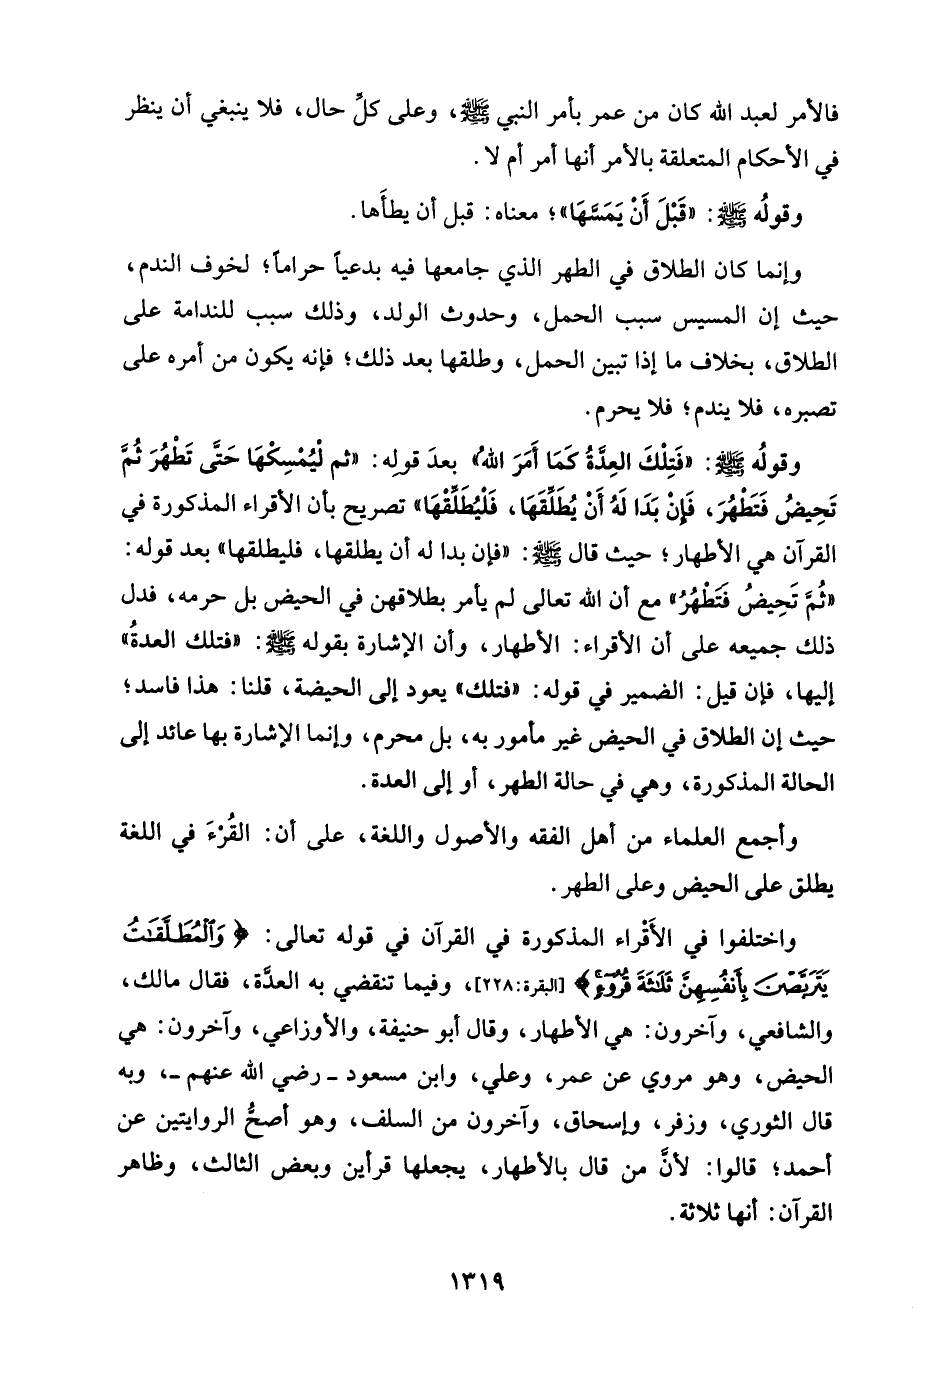 فالأمر لعبد الله كان من عمر بأمر النبي ﷺ، وعلى كلِّ حال، فلا ينبغي أن ينظر
في الأحكام المتعلقة بالأمر أنها أمر أم لا.
وقولُه ﷺ: «قَبْلَ أَنْ يَمَسَّهَا»؛ معناه: قبل أن يطأَها.
وإنما كان الطلاق في الطهر الذي جامعها فيه بدعياً حراماً؛ لخوف الندم،
حيث إن المسيس سبب الحمل، وحدوث الولد، وذلك سبب للندامة على
الطلاق، بخلاف ما إذا تبين الحمل، وطلقها بعد ذلك؛ فإنه يكون من أمره على
تصبره، فلا يندم؛ فلا يحرم.
وقولُه ﷺ: «فَتِلْكَ العِدَّةُ كَمَا أَمَرَ اللهُ» بعدَ قولِه: «ثم لْيُمْسِكْهَا حَتَّى تَطْهُرَ ثُمَّ
تَحِيضُ فَتَطْهُرَ، فَإِنْ بَدَا لَهُ أَنْ يُطَلِّقَهَا، فَلْيُطَلِّقْهَا» تصريح بأن الأقراء المذكورة في
القرآن هي الأطهار؛ حيث قال ﷺ: «فإن بدا له أن يطلقها، فليطلقها» بعد قوله:
«ثُمَّ تَحِيضُ فَتَطْهُرُ» مع أن الله تعالى لم يأمر بطلاقهن في الحيض بل حرمه، فدل
ذلك جميعه على أن الأقراء: الأطهار، وأن الإشارة بقوله ﷺ: «فتلك العدةُ»
إليها، فإن قيل: الضمير في قوله: «فتلك» يعود إلى الحيضة، قلنا: هذا فاسد؛
حيث إن الطلاق في الحيض غير مأمور به، بل محرم، وإنما الإشارة بها عائد إلى
الحالة المذكورة، وهي في حالة الطهر، أو إلى العدة.
وأجمع العلماء من أهل الفقه والأصول واللغة، على أن: القُرْءَ في اللغة
يطلق على الحيض وعلى الطهر.
واختلفوا في الأَقْراء المذكورة في القرآن في قوله تعالى: ﴿ وَٱلْمُطَلَّقَٰتُ
يَتَرَبَّصْنَ بِأَنفُسِهِنَّ ثَلَٰثَةَ قُرُوٓءٍ ﴾ [البقرة: ٢٢٨]، وفيما تنقضي به العدَّة، فقال مالك،
والشافعي، وآخرون: هي الأطهار، وقال أبو حنيفة، والأوزاعي، وآخرون: هي
الحيض، وهو مروي عن عمر، وعلي، وابن مسعود ـ رضي الله عنهم ـ، وبه
قال الثوري، وزفر، وإسحاق، وآخرون من السلف، وهو أصحُّ الروايتين عن
أحمد؛ قالوا: لأنَّ من قال بالأطهار، يجعلها قرأين وبعض الثالث، وظاهر
القرآن: أنها ثلاثة.
١٣١٩